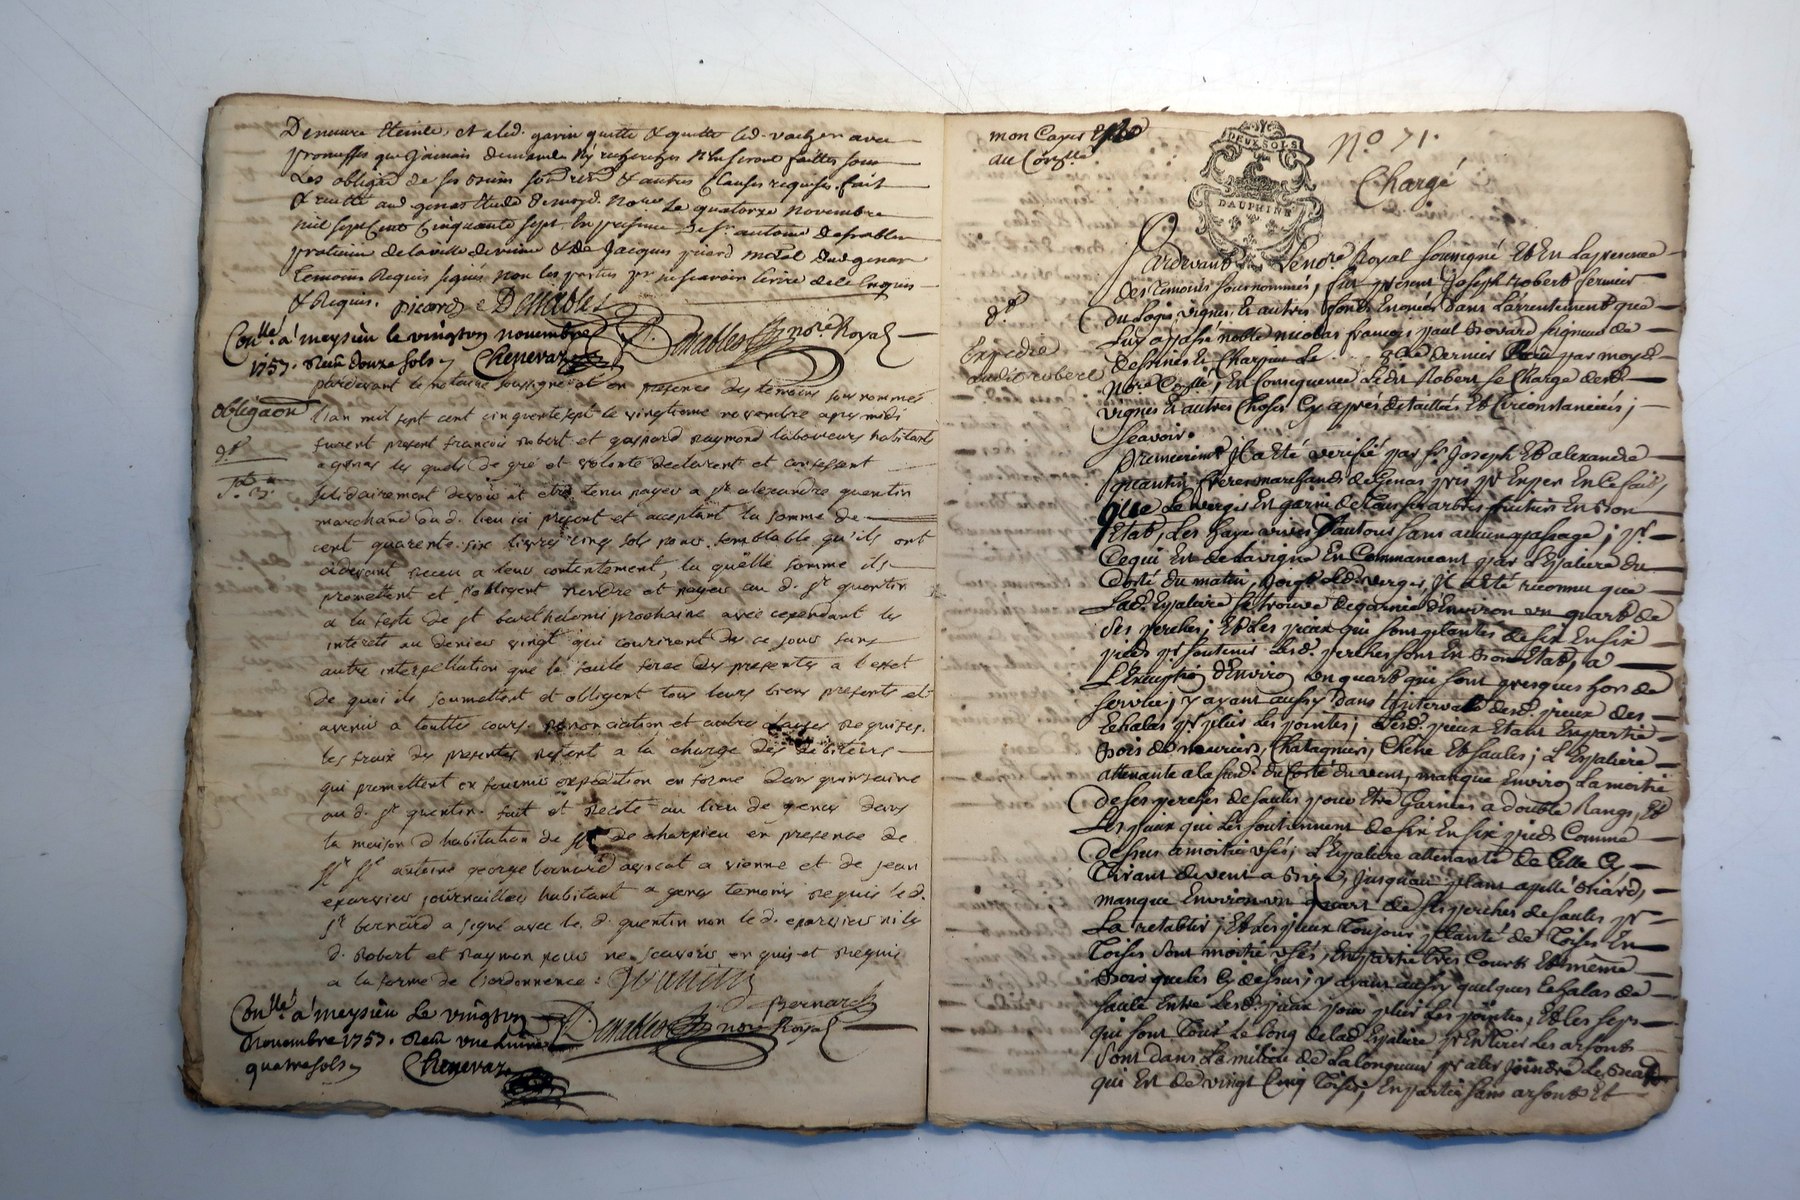 Demeure Eteinte, et aled. garin quitté & quitte led. vachon avec
promesses que jamais demande ny recherches n'En seront faittes sous
Les obligãon de ses biens soũ renon & autres Clauses requises. fait
& recitté aud genas Etude de moyd. Nore Le quatorze novembre
mil sept Cent Cinquante sept, En présence de sr. antoine
praticien de la ville de vienne & de Jacques picard dudt genas
temoins Requis signés non les parties pr ne scavoir Ecrire de ce Enquis
& Requis. picard Demables
Demables Nore Royal
Conllé. à meysieu le vingt novembre
1757. Reçu douze sols Chenevaz
pardevant le notaire soussigné et en presence des temoins sous nommes
obligãon
l'an mil sept cent cinquante sept le vingtieme novembre apres midi
furent present francois Robert et gaspard Raymond laboureurs habitant
a genas les quels de gré et volonté declarent et confessent
solidairement devoir et etre tenu payer a sr alexandre quentin
marchand du d. lieu ici present et acceptant la somme de
cent quarente six livres cinq sols pour semblable qu'ils ont
cidevant receu a leur contentement, la quelle somme ils
promettent et s'obligent rendre et payer au d. sr quentin
a la feste de st barthelemi prochaine avec cependant les
interets au denier vingt qui courirent des ce jour sans
autre interpellation que la seule force des presentes a l'effet
de quoi ils soumettent et obligent tous leurs biens presents et
avenir a touttes cours renonciation et autres clauses requises.
les fraix des presentes restent a la charge des debiteurs
qui promettent en fournir expedition en forme dans quinsaine
au d. sr quentin. fait et recité au lieu de genas dans
la maison d'habitation de de charpieu en presence de
antoine george bernard avocat a vienne et de jean
eparvier journailler habitant a genas temoins requis le d.
sr bernard a signé avec le d. quentin non le d. eparvier ni les
d. Robert et Raymon pour ne scavoir en quis et requis
a la forme de l'ordonnance: Quantin
Bernard
Demables nore Royal
Conllé. a meysieu Le vingt
Novembre 1757. Reçu une livre
quatre sols
Chenevaz
mon Cayer
au Conlle
DEUX SOLS
DAUPHINE
No 71.
Chargé
Pardevant Le nore Royal soussigné Et En la presence
des temoins sousnommés, fut présent Joseph Robert fermier
du Logis, vignes, & autres fonds Enoncés dans L'arrentement que
Luy a passé noble nicolas françois paul Bovard seigneur de
Expedié
audit robert
& Charpieu Le dernier Reçu par moyd.
nore Conllé; En Consequence Ledit Robert se Charge desd.
vignes & autres Choses Cy après detaillées Et Circonstanciées;
Scavoir.
premierement Il a Eté verifié par srs Joseph Et alexandre
quantin freres marchands de Genas pris pr Expers En ce fait,
que Le verger En garni de tous ses arbres fruitiers En Bon
Etat, Les Hayes vives D'autour sans aucun passage; pr
Ce qui Est de La vigne En Commenceant par L'Espaliere du
Costé du matin, Joignt Led. verger, Il a Eté reconnu que
Lad. Espaliere se trouve degarnie d'Environ un quart de
ses perches; Et Les pieux qui sont plantés de six En six
pieds pr soutenir Lesd. perches sont En Bon Etat, a
L'Exception d'Environ un quart qui sont presques hors de
service; y ayant aussy dans L'intervale desd. pieux des
Echalas pr plier Les pointes; Lesd. pieux Etant En partie
Bois de meurier, Chatagnier, Chêne Et saules; L'Espaliere
attenante a la susd. du Costé du vent, manque Environ La moitié
de ses perches de saules pour Etre Garnies a double Rangs, Et
Les pieux qui Les soutiennent de six En six pieds Comme
dessus a moitié usés; L'Espaliere attenante de Celle Cy
Tirant de vent a Bize, Jusqu'au plant apellé Bicard,
manque Environ un quart de ses perches de saules pr
La retablir; Et Les pieux Toujours planté de Toises En
Toises sont moitié usés, En partie très Courts Et même
Bois que les Cy dessus; y ayant aussy quelques Echalas de
saule Entre Lesd. pieux pour plier Les pointes; Et les seps
qui sont Tout Le long de lad. Espaliere
sont dans Le milieu de La longueur
qui Est de vingt Cinq Toises; En partie sans arsons Et